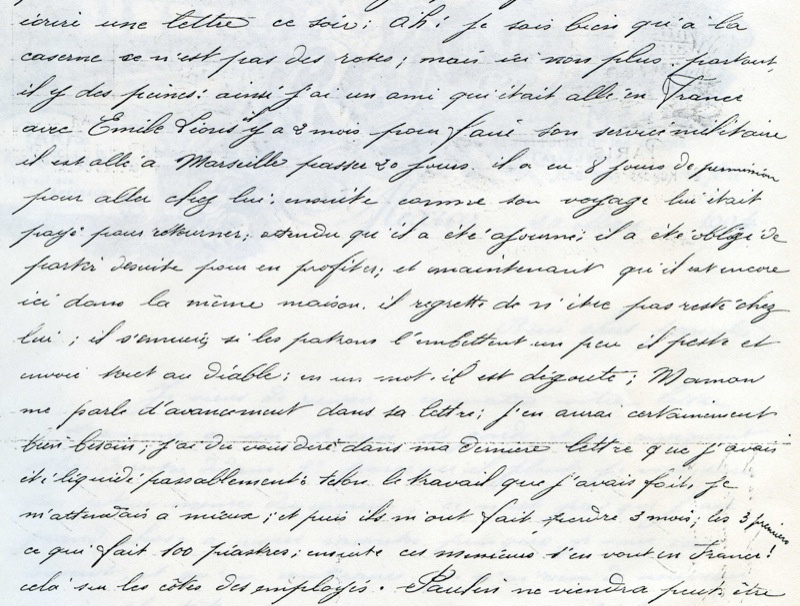 écrire une lettre ce soir; ah! je sais bien qu'à la
caserne ce n'est pas des roses; mais ici non plus, partout,
il y des peines: ainsi j'ai un ami qui était allé en France
avec Emile Léonis y a 2 mois pour faire son service militaire
il est allé à Marseille passer 20 jours, il a eu 8 jours de permission
pour aller chez lui, ensuite comme son voyage lui était
payé pour retourner; attendu qu'il a été ajourné; il a été obligé de
partir desuite pour en profiter; et maintenant qu'il est encore
ici dans la même maison, il regrette de n'être pas resté chez
lui; il s'ennuie, si les patrons l'embettent un peu il peste et
envoie tout au diable; en un mot, il est dégouté; Maman
me parle d'avancement dans sa lettre; j'en aurai certainement
bien besoin; j'ai du vous dire dans ma dernière lettre que j'avais
été liquidé passablement: selon le travail que j'avais fait, je
m'attendais à mieux; et puis ils m'ont fait perdre 3 mois; les 3 premiers
ce qui fait 100 piastres; ensuite ces messieurs s'en vont en France!
celà sur les côtes des employés. Paulin ne viendra peut être